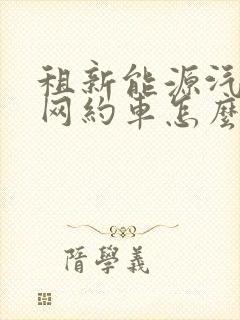 租新能源汽
网約車怎麼
隋學義